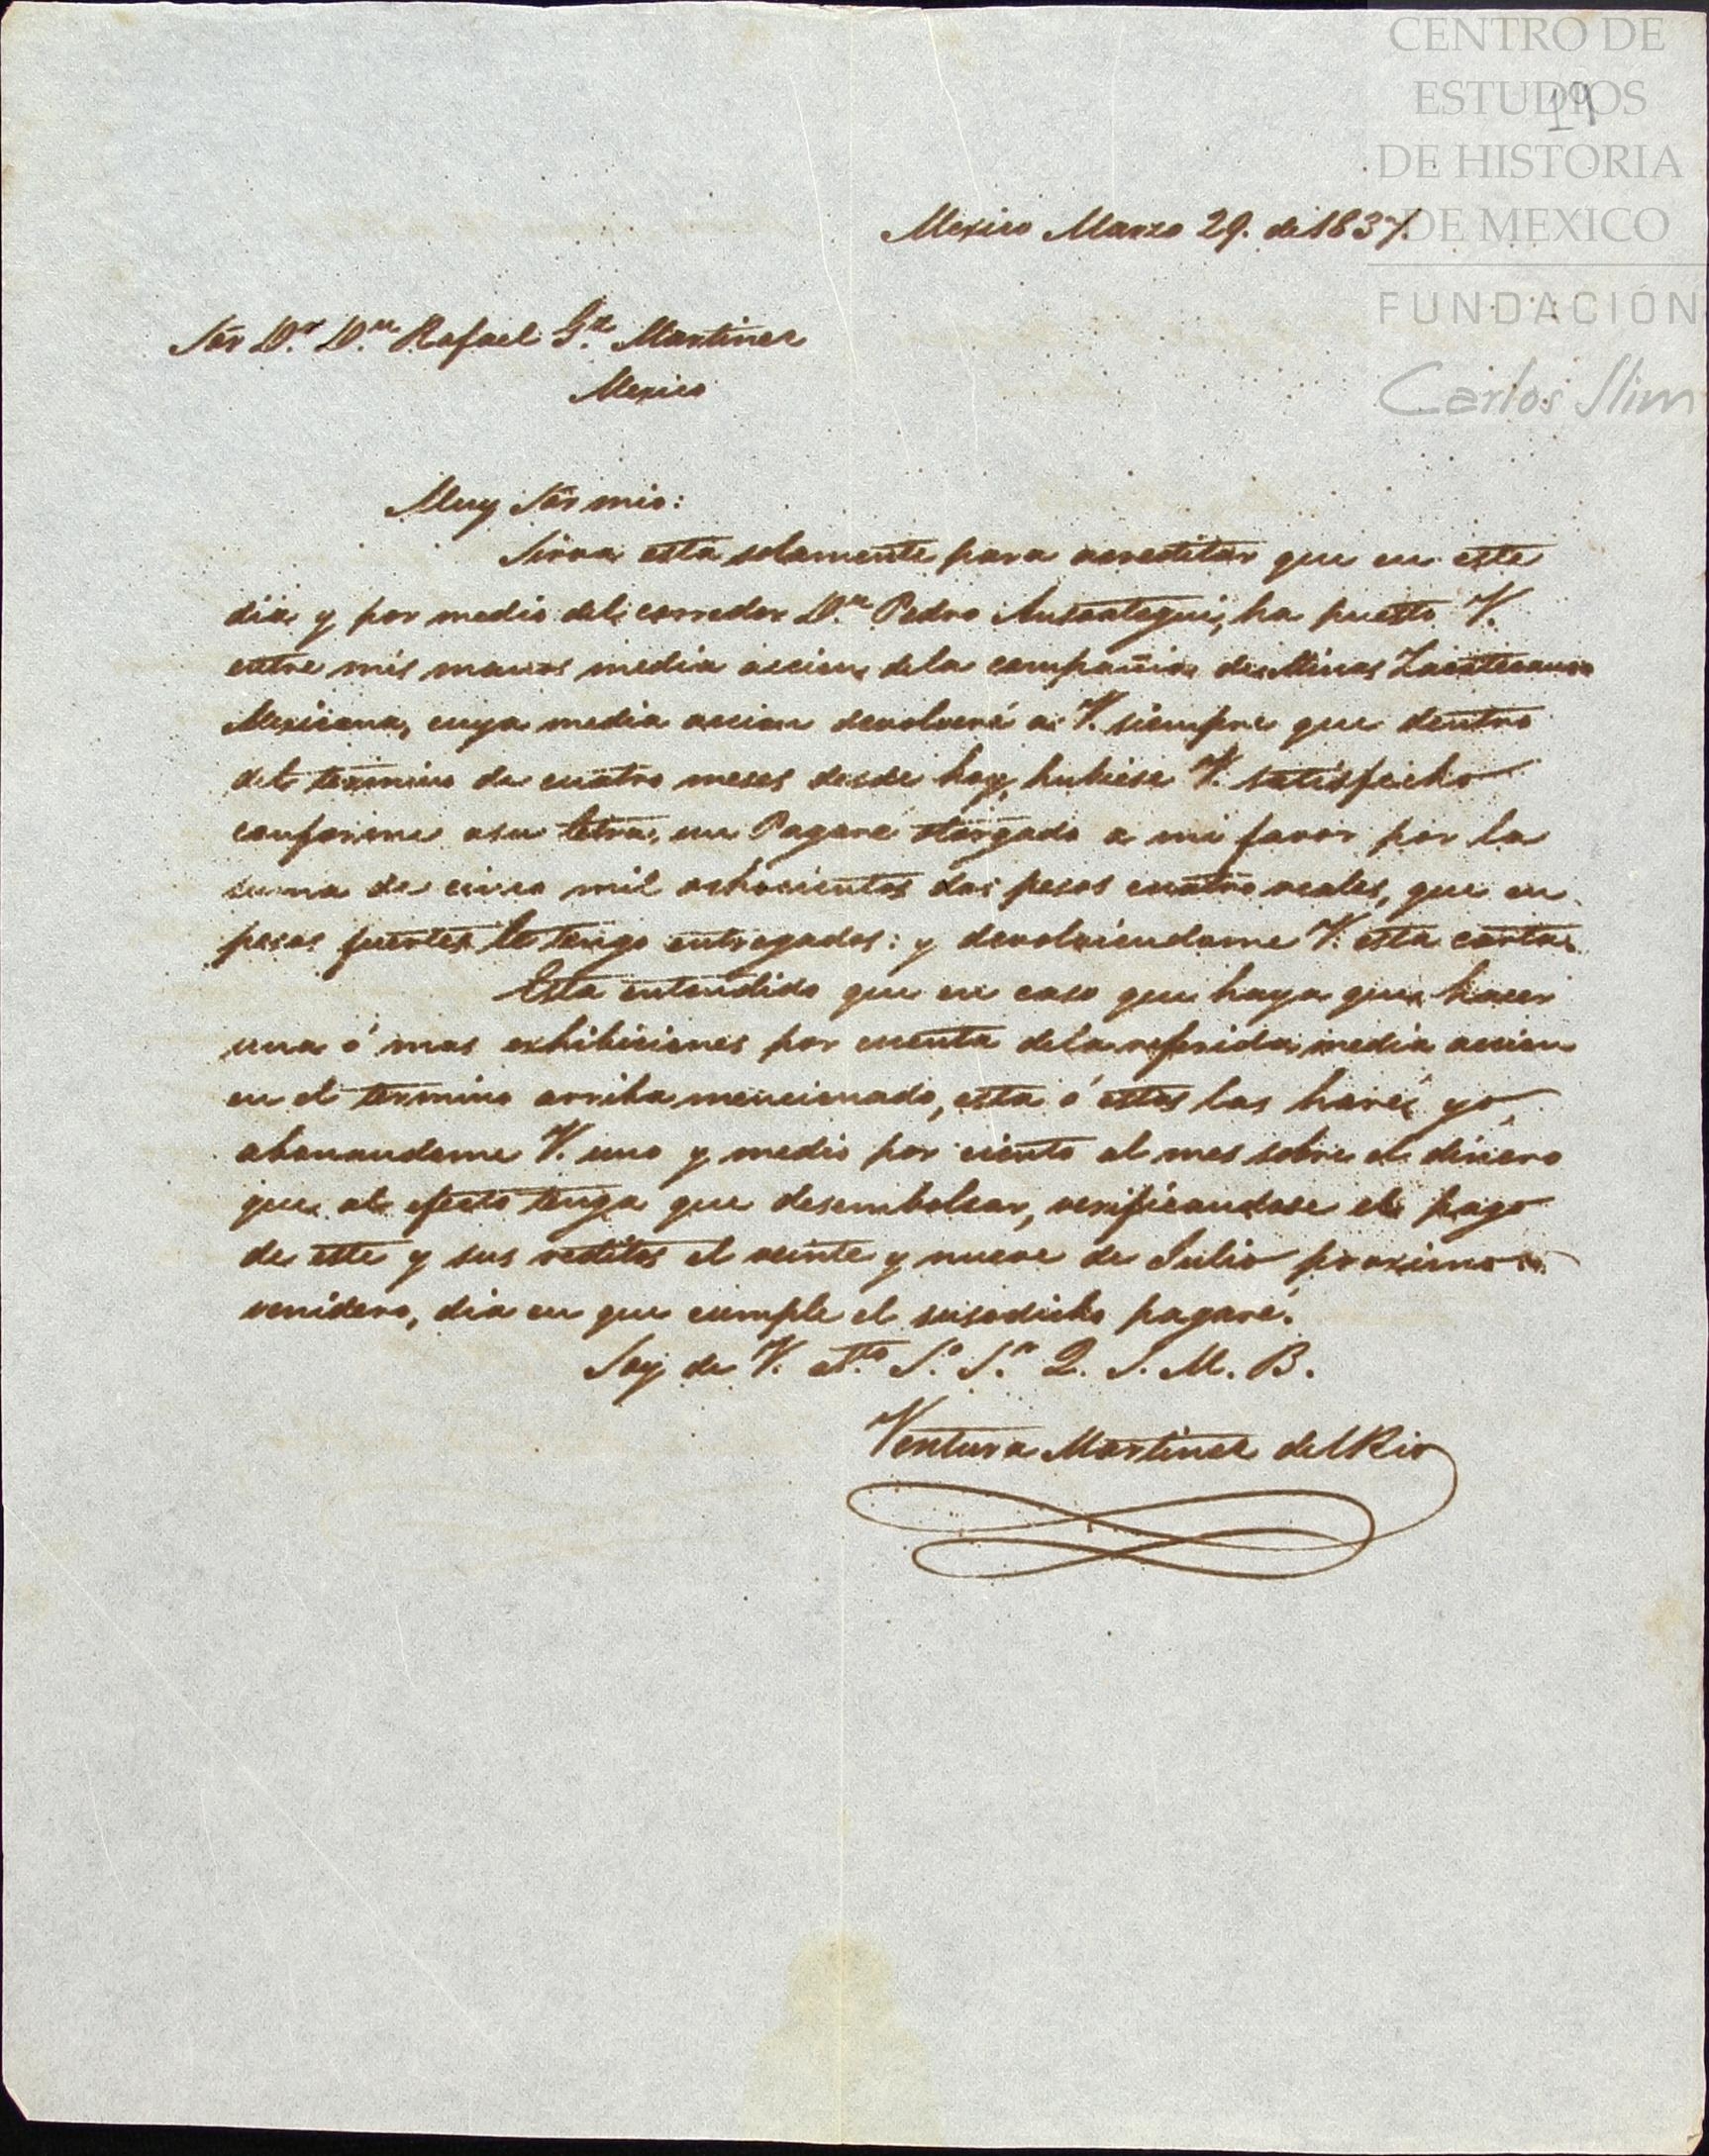 CENTRO DE
ESTUDIOS
DE HISTORIA
DE MEXICO
FUNDACIÓN
Carlos Slim
19
Mexico Marzo 29. de 1837.
Sör D.r D.n Rafael G.z Martinez
Mexico
Muy Sör mio:
Sirva esta solamente para acreditar que en este
dia y por medio del corredor D.n Pedro Ansoategui, ha puesto V.
entre mis manos media accion dela compañia de Minas Zacatecano
Mexicana, cuya media accion devolveré a V. siempre que dentro
del termino de cuatro meses desde hoy, hubiese V. satisfecho
conforme asu letra, un Pagaré otorgado a mi favor por la
suma de cinco mil ochocientos dos pesos cuatro reales, que en
pesos fuertes le tengo entregados: y devolviendome V. esta carta.
Esta entendido que en caso que haya que hacer
una ó mas exhibiciones por cuenta dela referida media accion
en el termino arriba mencionado, esta ó estas las haré yo,
abonandome V. uno y medio por ciento al mes sobre el dinero
que al efecto tenga que desembolsar, verificandose el pago
de este y sus reditos el veinte y nueve de Julio proximo
venidero, dia en que cumple el susodicho pagaré.
Soy de V. at.to S.o S.r Q. S. M. B.
Ventura Martinez del Rio